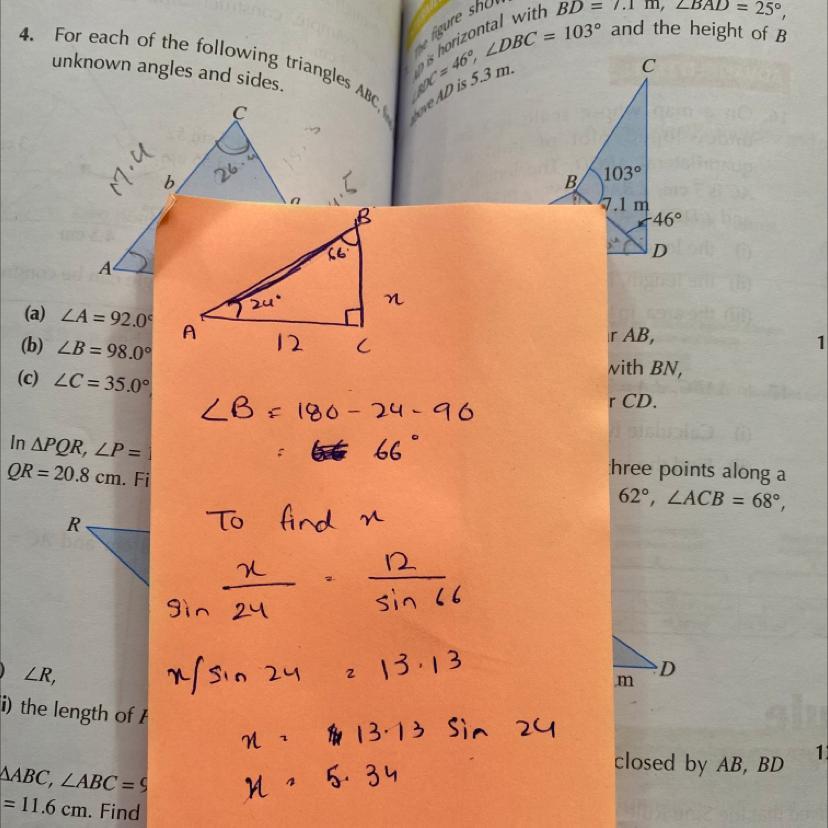 4. For each of the following triangles ABC,
unknown angles and sides.
C
M.U
26.
b
a
A
(a) ∠A = 92.0°
(b) ∠B = 98.0°
(c) ∠C = 35.0°
In ΔPQR, ∠P =
QR = 20.8 cm. Fi
R
∠R,
i) the length of
ΔABC, ∠ABC = 9
= 11.6 cm. Find
The figure show
AD is horizontal with BD = 7.1 m, ∠BAD = 25°,
∠BDC = 46°, ∠DBC = 103° and the height of B
above AD is 5.3 m.
C
B
103°
7.1 m
46°
D
r AB,
with BN,
r CD.
three points along a
62°, ∠ACB = 68°,
D
m
closed by AB, BD
1
B
66°
24°
x
A
12
C
∠B = 180 - 24 - 90
= 66°
To find x
x = 12
sin 24 sin 66
x/sin 24 = 13.13
x = 13.13 sin 24
x = 5.34